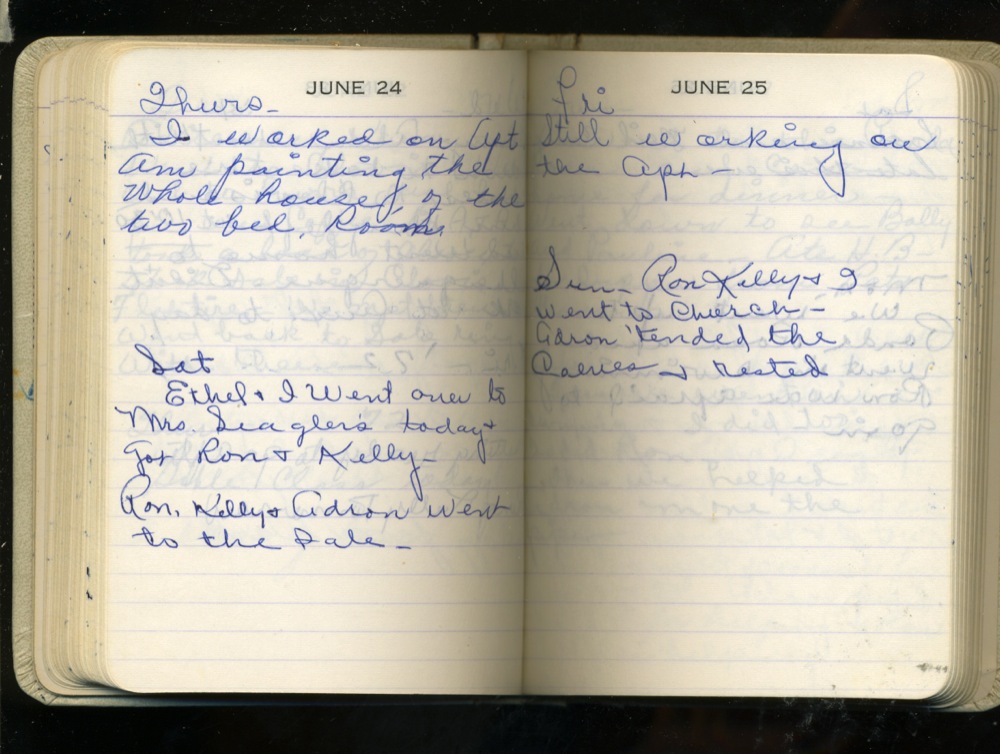 JUNE 24
Thurs-
I worked on Apt
Am painting the
Whole house, of the
two bed, Rooms
Sat
Ethel & I Went over to
Mrs. Seagler's today &
Got Ron & Kelly-
Ron, Kelly & Adron went
to the Sale-
JUNE 25
Fri-
Still working on
the Apt-
Sun- Ron Kelly & I
went to Church-
Adron 'tended the
Calves & rested